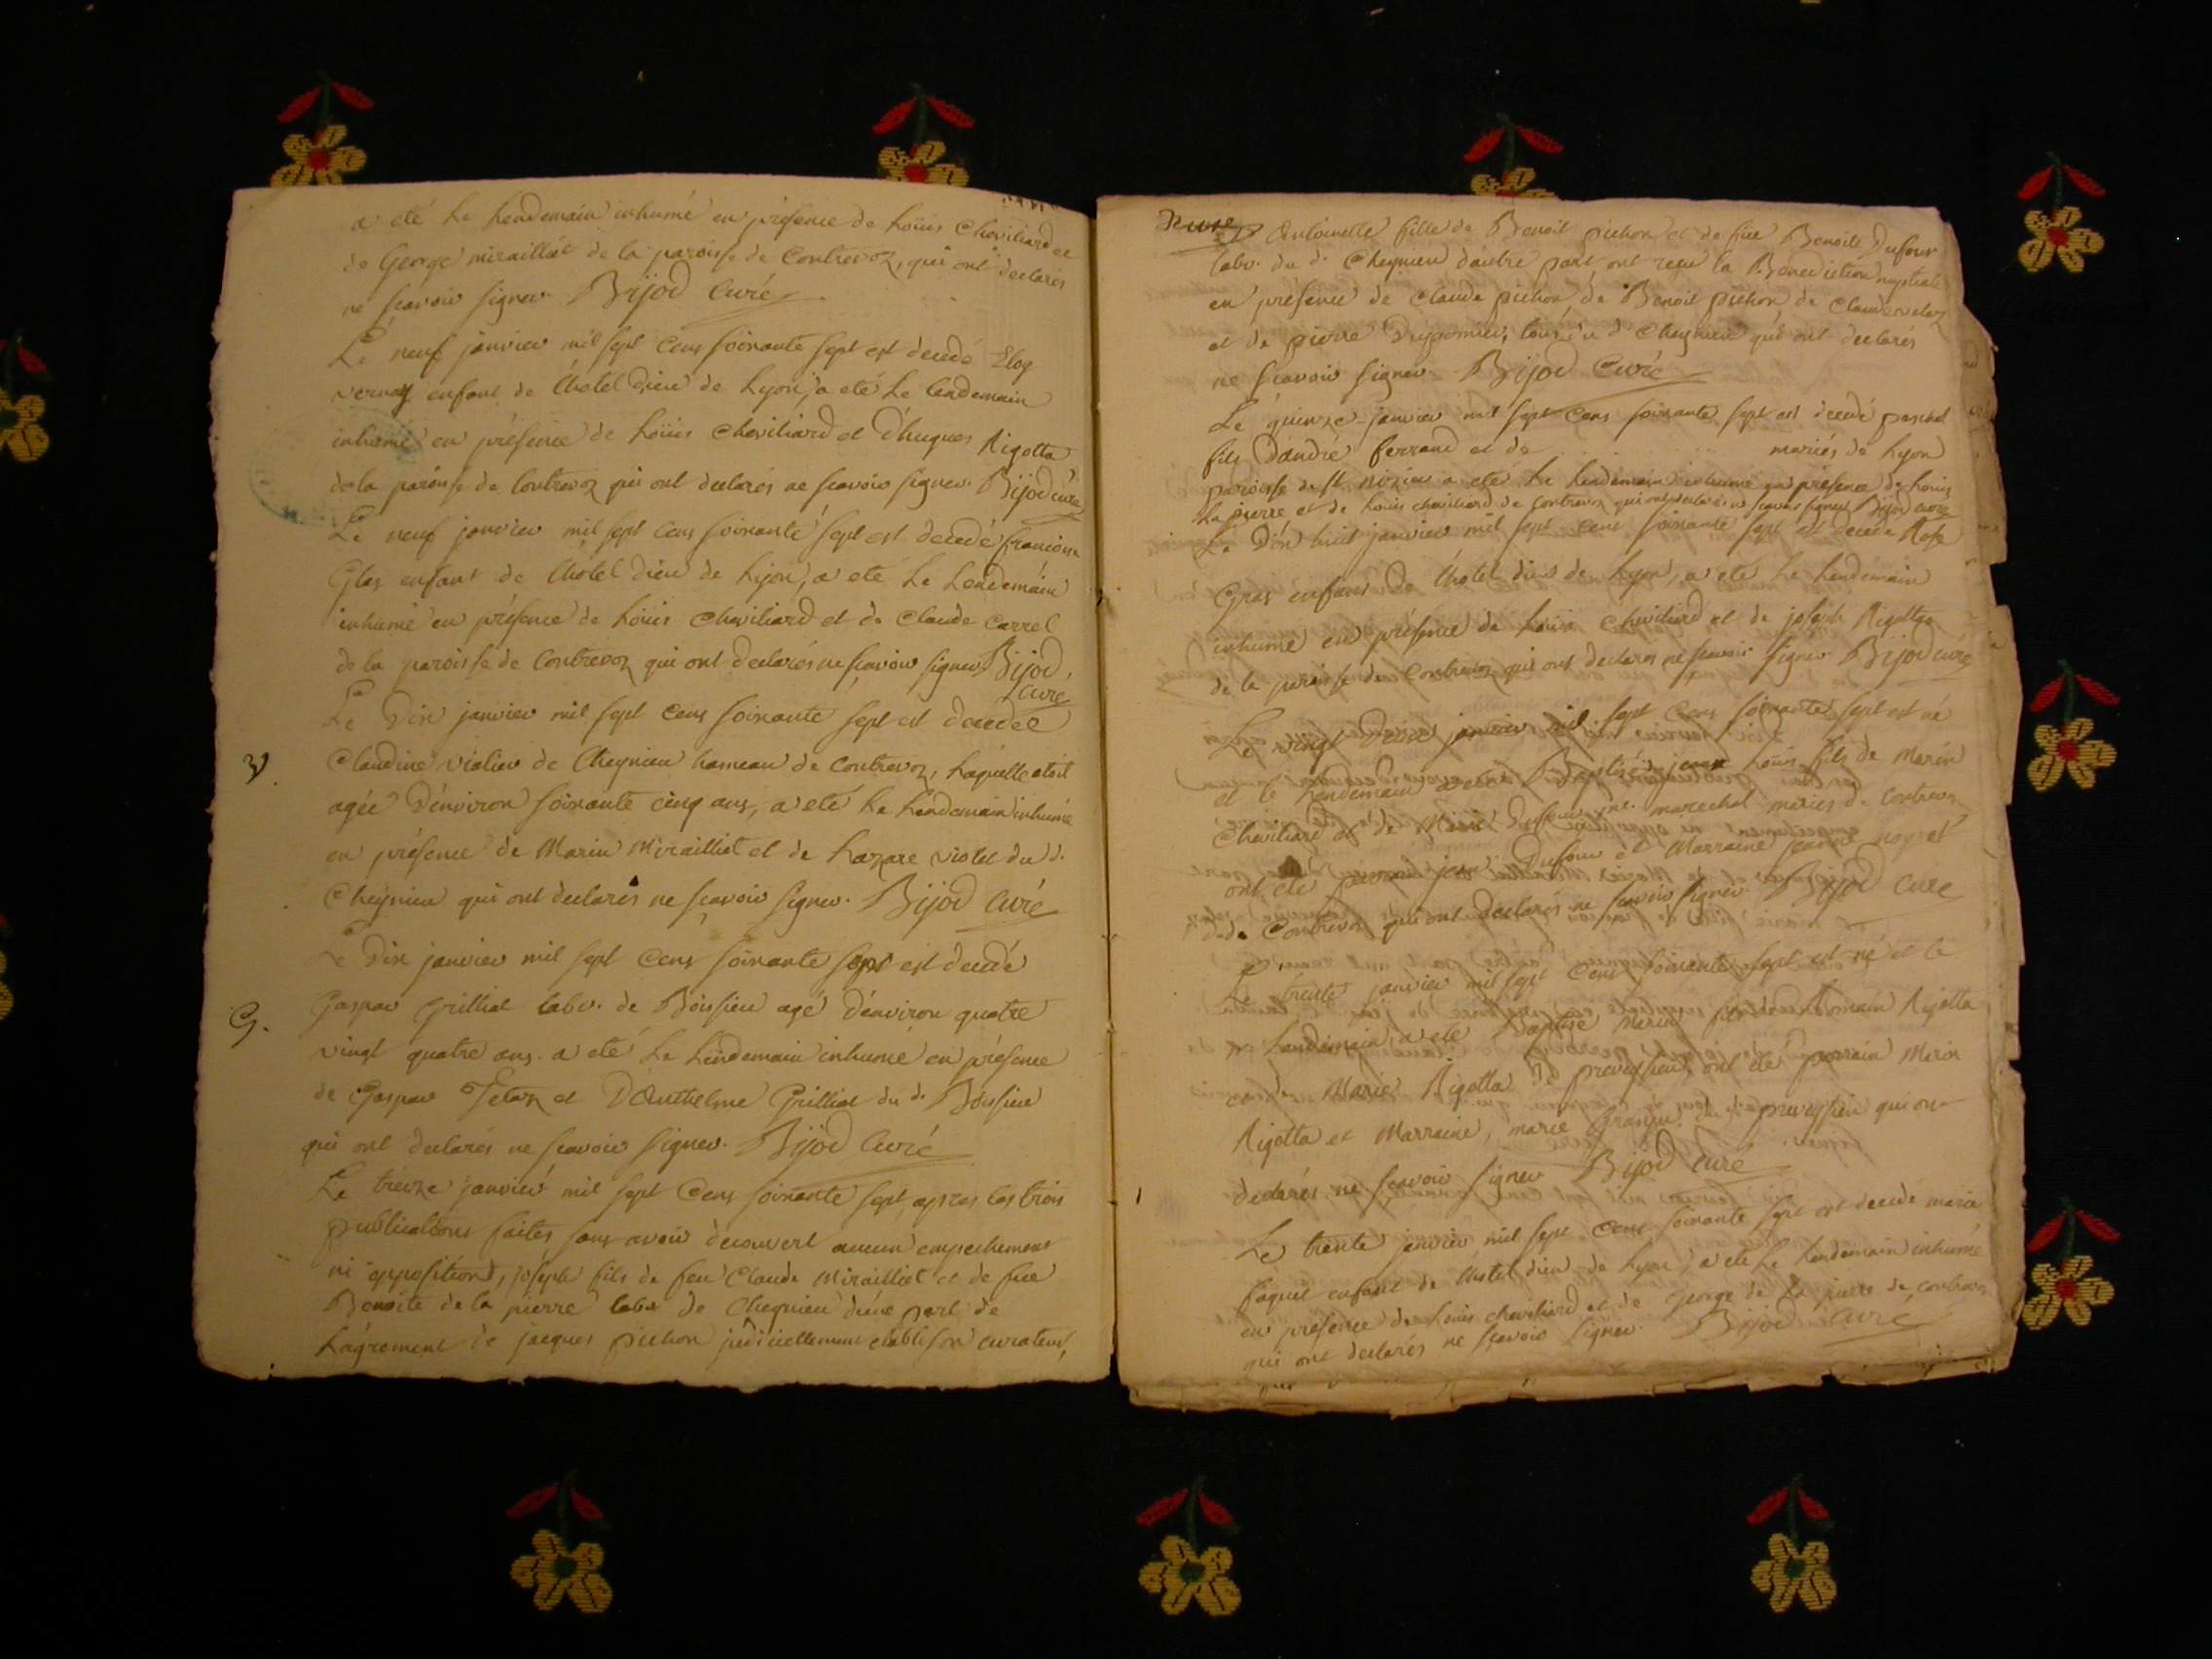 a eté le Lendemain inhumé en présence de Loüis Cheviliard et
de George miraillat de la paroisse de Contrevoz, qui ont declarés
ne scavoir signer. Bijod Curé
Le neuf janvier mil sept Cens soixante sept est decedé Eloy
vernay enfant de l'hotel Dieu de Lyon, a eté Le Lendemain
inhumé en présence de Loüis Cheviliard et d'hugues Rigotta
de la paroisse de Contrevoz qui ont declarés ne scavoir signer. Bijod curé
Le neuf janvier mil sept Cens soixante sept est decedé
enfant de l'hotel dieu de Lyon, a eté Le Lendemain
inhumé en présence de Loüis Cheviliard et de Claude Carrel
de la paroisse de Contrevoz qui ont declarés ne scavoir signer Bijod
Curé
Le Dix janvier mil sept Cens soixante sept est decedée
V.
Claudine violier de Cheynieu hameau de Contrevoz, Laquelle etoit
agée D'environ soixante cinq ans, a eté Le Lendemain inhumé
en présence de Marin Mirailliet et de Lazare violet du d.
Cheynieu qui ont declarés ne scavoir signer. Bijod Curé
Le Dix janvier mil sept Cens soixante sept est decedé
G.
Gaspar Grilliat labr. de Boissieu agé D'environ quatre
vingt quatre ans. a eté Le Lendemain inhumé en présence
de Gaspar et D'Anthelme Grilliat du d. Boissieu
qui ont declarés ne scavoir signer. Bijod Curé
Le treize janvier mil sept Cens soixante sept, apres les trois
publications faites sans avoir decouvert aucun empechement
ni opposition, joseph fils de feu Claude Mirailliet et de füe
Benoite de la pierre labr de Cheynieu d'une part de
Lagrement de jacques pichon judiciellement etabli son curateur,
Antoinette fille de Benoit pichon et de füe Benoite Dufour
labr. du d. Cheynieu d'autre part ont reçu la Bénédiction nuptiale
en présence de Claude pichon, de Benoit pichon, de Claude
et de pierre tous du d. Cheynieu qui ont declarés
ne scavoir signer. Bijod Curé
Le quinze janvier mil sept cens soixante sept est decedé
fils D'andré ferrand et de mariés de Lyon
paroisse de st. nizier a eté Le Lendemain inhumé en présence de Louis
La pierre et de Louis cheviliard de Contrevoz qui ont declarés ne scavoir signer Bijod curé
Le Dix huit janvier mil sept cent soixante sept est decedé Rose
Gras enfant de l'hotel dieu de Lyon, a eté Le Lendemain
inhumé en présence de Loüis Cheviliard et de joseph Rigotta
de la paroisse de Contrevoz qui ont declarés ne scavoir signer Bijod curé
Le vingt janvier mil sept cens soixante sept est né
et le Lendemain a eté Baptisé jean Loüis fils de Marin
Cheviliard et de Marie Dufour marechal mariés de Contrevoz
ont eté parrain jean Dufour et Marraine jeanne
de Contrevoz qui ont declarés ne scavoir signer Bijod Curé
Le trente janvier mil sept Cens soixante sept est né et le
Lendemain, a eté Baptisé Marin fils de Romain Rigotta
et de Marie Rigotta de preveyssieu, ont eté parrain Marin
Rigotta et Marraine, marie du d. preveyssieu qui ont
declarés ne scavoir signer Bijod Curé
Le trente janvier mil sept cens soixante sept est decedé marie
enfant de l'hotel dieu de Lyon a eté Le Lendemain inhumé
en présence de Louis cheviliard et de George de La pierre de Contrevoz
qui ont declarés ne scavoir signer. Bijod Curé